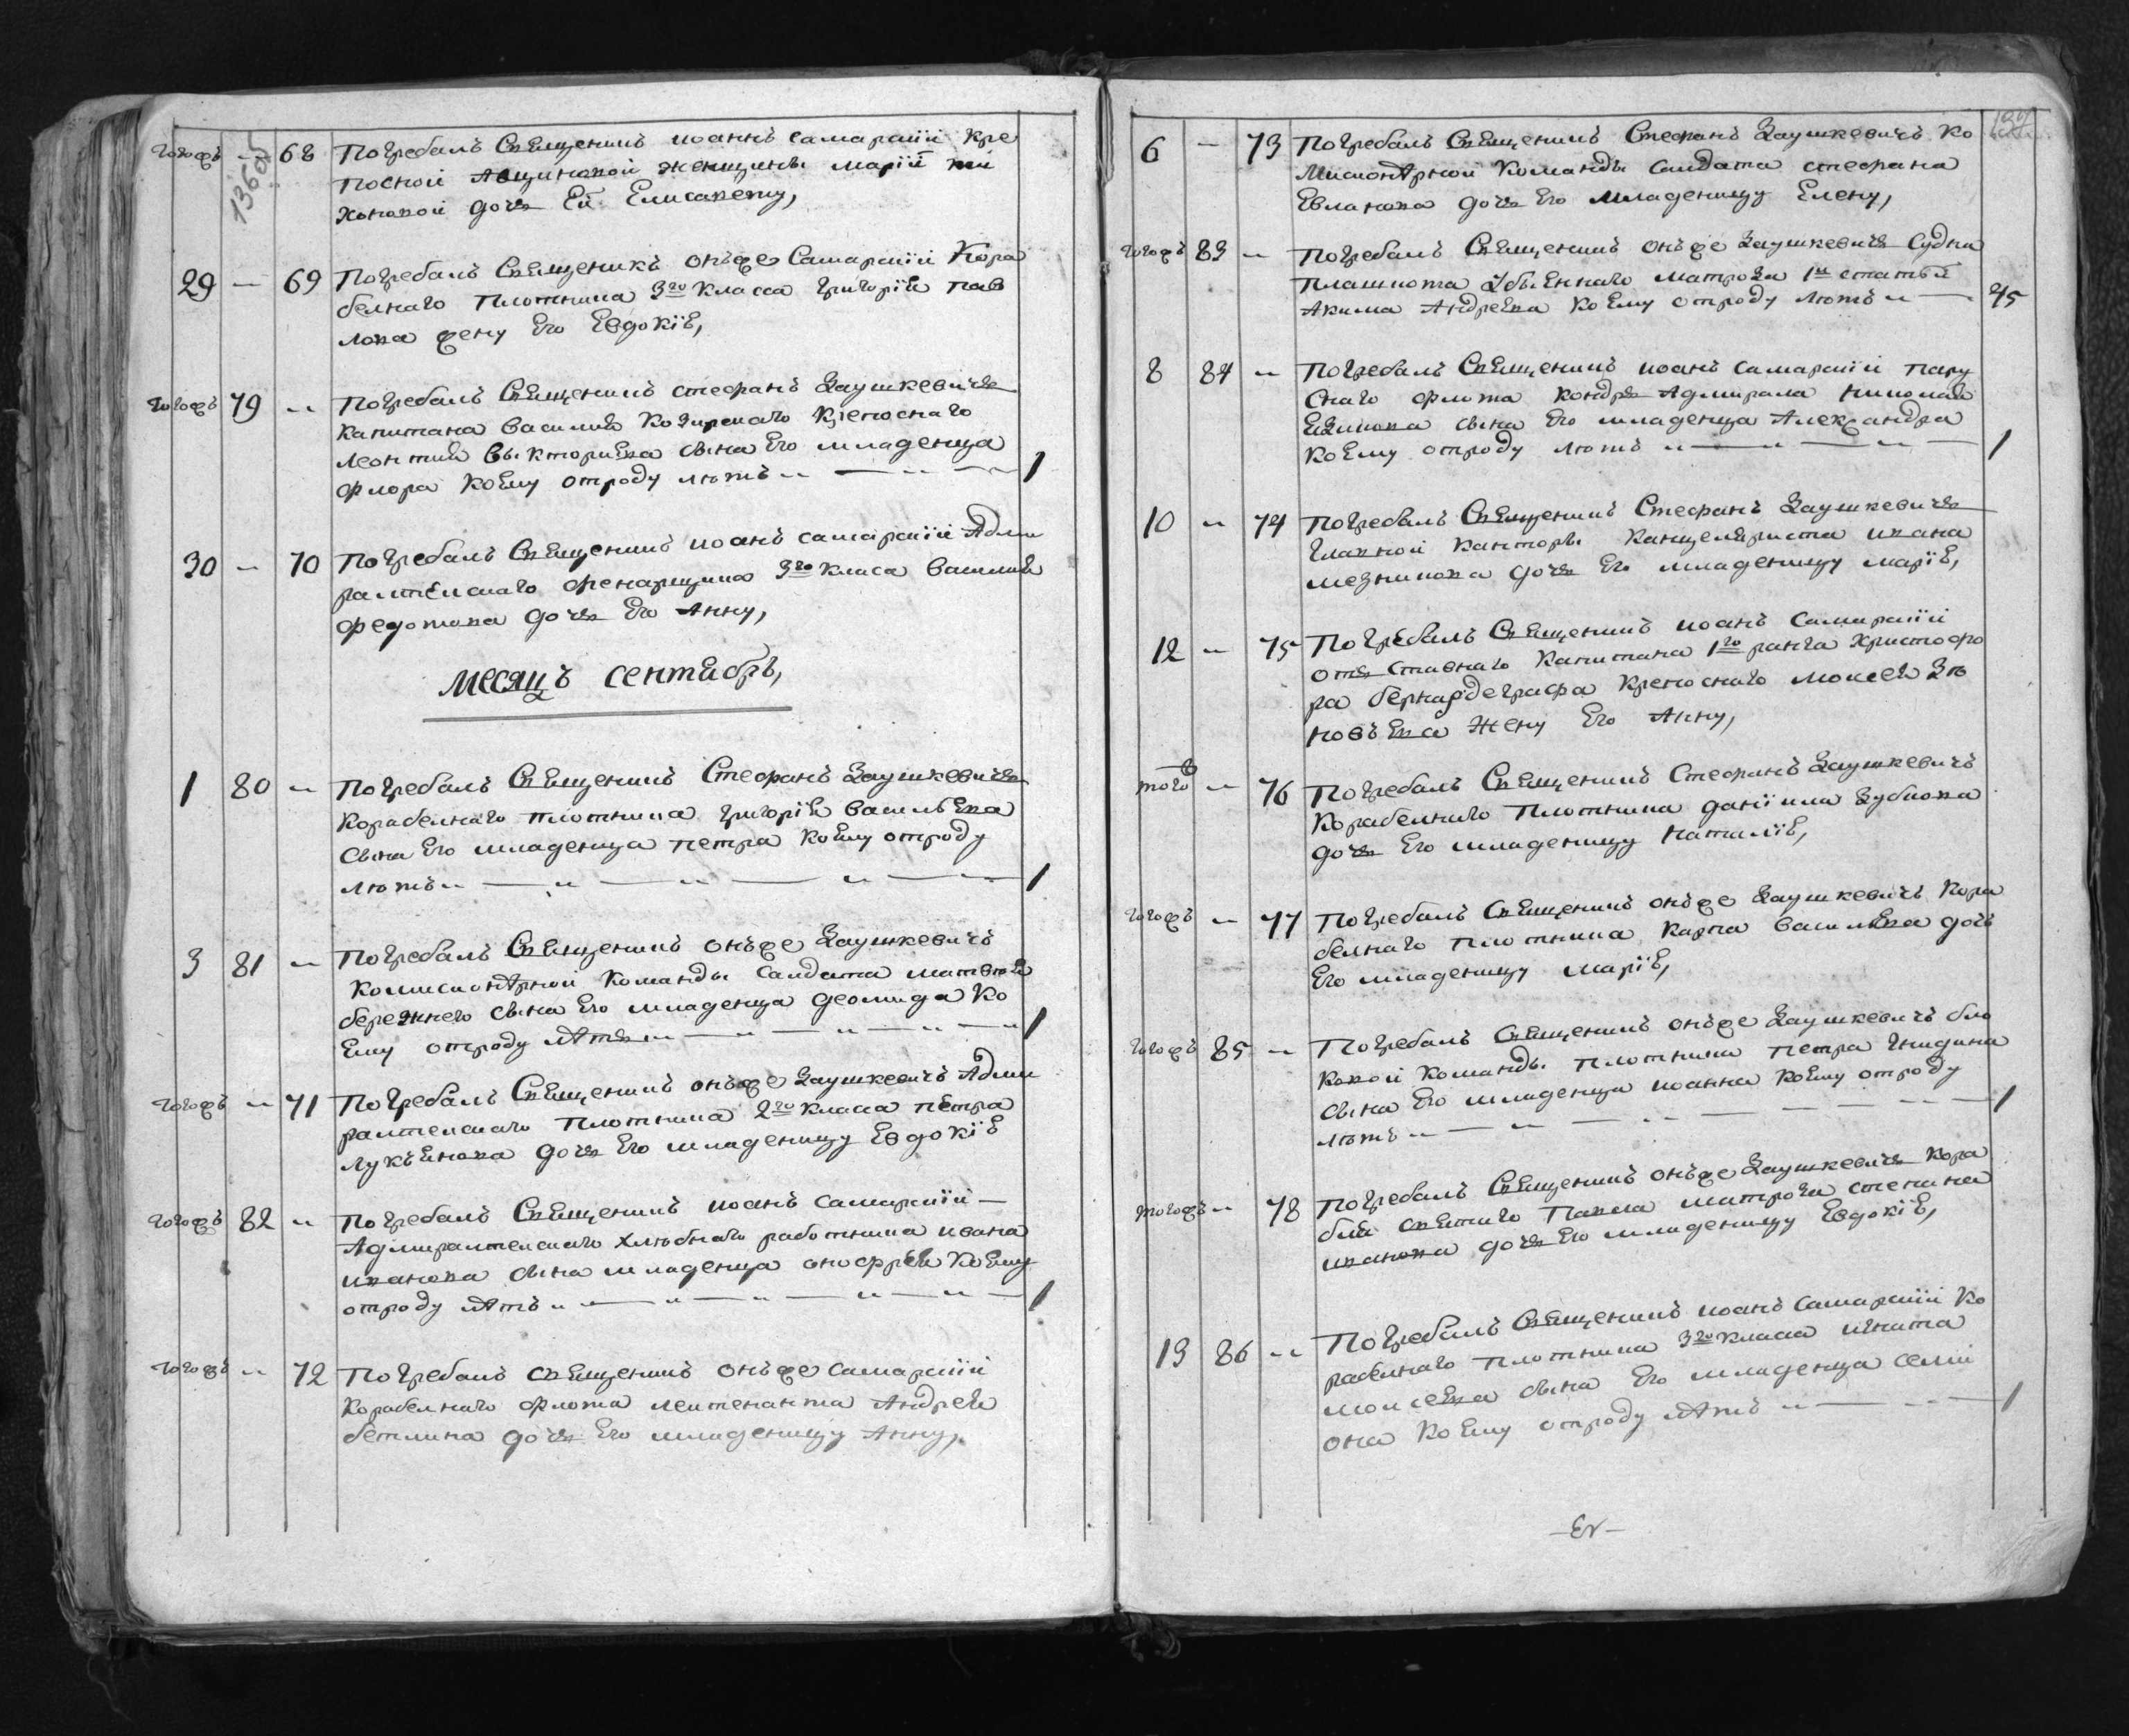 тогожъ — 68 Погребалъ Священникъ иоаннъ самарский Кре
посной женщины марии ти
хоновой дочь Её Елисавету,
29 — 69 Погребалъ Священикъ онъже Самарский Кора
белнаго плотника 3го класса григория пав
лова жену Его Евдокiю,
тогожъ 79 " Погребалъ Священникъ стефанъ Заушкевичъ
капитана василия Крепоснаго
леонтия викторьева сына Его младенца
флора коему отроду летъ 1
30 — 70 Погребалъ Священникъ иоанъ самарский Адми
ралтейскаго 3го класа василия
федотова дочь Его Анну,
месяцъ сентябрь,
1 80 " Погребалъ Священникъ Стефанъ Заушкевичъ
корабелнаго плотника григорiя васильева
сына Его младенца петра коему отроду
летъ 1
3 81 " Погребалъ Священникъ онъже Заушкевичъ
комисионярной команды салдата матвея
бережнего сына Его младенца деомида ко
ему отроду летъ 1
тогожъ " 71 Погребалъ Священникъ онъже Заушкевичъ Адми
ралтейскаго плотника 2го класса петра
лукьянова дочь Его младеницу Евдокiю
тогожъ 82 " Погребалъ Священникъ иоанъ самарский
Адмиралтейскаго хлебнаго работника ивана
иванова сына младенца онофрея коему
отроду летъ 1
тогожъ " 72 Погребалъ священникъ онъже самарский
корабелнаго флота лейтенанта Андрея
бетлина дочь Его младеницу Анну,
6 — 73 Погребалъ Священникъ Стефанъ Заушкевичъ Ко
мисионярной команды салдата стефана
Евланова дочь Его младеницу Елену,
тогожъ 83 " Погребалъ Священникъ онъже Заушкевичъ Судна
плашкота убиеннаго матроза 1й статьи
Акима Андреева коему отроду летъ 45
8 84 " Погребалъ Священникъ иоанъ самарский пару
снаго флота кондръ Адмирала николая
сына Его младенца Александра
коему отроду летъ 1
10 " 74 Погребалъ Священникъ Стефанъ Заушкевичъ
главной канторы канцеляриста ивана
мезникова дочь Его младеницу марiю,
12 " 75 Погребалъ Священникъ иоанъ самарский
отъставнаго капитана 1го ранга христофо
ра бернардеграфа крепоснаго моисея Зи
новьева жену Его Анну,
того ж " 76 Погребалъ Священникъ Стефанъ Заушкевичъ
корабелнаго плотника данiила Зубкова
дочь Его младеницу наталiю,
тогожъ " 77 Погребалъ Священникъ онъже Заушкевичъ кора
белнаго плотника карпа васильева дочь
Его младеницу марiю,
тогожъ 85 " Погребалъ Священникъ онъже Заушкевичъ бло
ковой команды плотника петра гнидина
сына Его младенца иоанна коему отроду
летъ 1
тогожъ " 78 Погребалъ Священникъ онъже Заушкевичъ кора
бля святаго Павла матроза степана
иванова дочь Его младеницу Евдокiю,
13 86 " Погребалъ Священникъ иоанъ самарский ко
рабелнаго плотника 3го класса игната
моисеева сына Его младенца семи
она коему отроду летъ 1